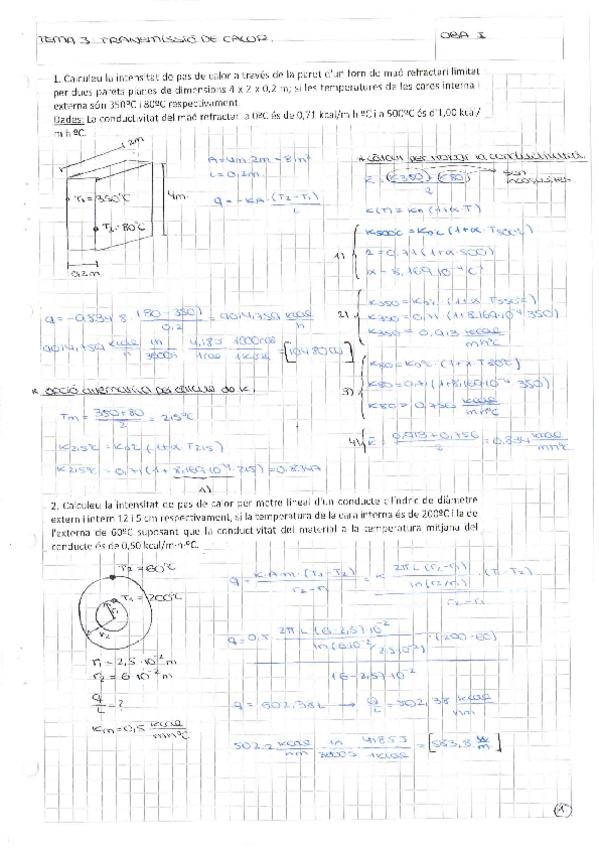 TEMA 3. TRANSMISSIÓ DE CALOR.
OBA I
1. Calculeu la intensitat de pas de calor a través de la paret d'un forn de maó refractari limitat
per dues parets planes de dimensions 4 x 2 x 0,2 m; si les temperatures de les cares interna i
externa són 350ºC i 80ºC respectivament.
Dades: La conductivitat del maó refractari a 0ºC és de 0,71 kcal/m h ºC i a 500ºC és d'1,00 kcal/
m h ºC.
2m
4m
T1 = 350°C
T2 = 80°C
0,2m
A = 4m · 2m = 8m²
L = 0,2m
q = -K·A · (T2 - T1) / L
K(T) = K0 (1 + αT)
1) K500°C = K0°C (1 + α · T500°C)
α = 8,169·10⁻⁴ C⁻¹
2) K350 = K0°C (1 + α · T350°C)
K350 = 0,71 (1 + 8,169·10⁻⁴ · 350)
K350 = 0,913 kcal / mh°C
3) K80 = K0°C · (1 + α · T80°C)
K80 = 0,71 (1 + 8,169·10⁻⁴ · 350)
K80 = 0,756 kcal / mh°C
4) K̄ = (0,913 + 0,756) / 2 = 0,834 kcal / mh°C
* OPCIÓ ALTERNATIVA pel càlcul de K.
Tm = (350 + 80) / 2 = 215°C
K215°C = K0°C (1 + α T215)
K215°C = 0,71 (1 + 8,169·10⁻⁴ · 215) = 0,8347
2. Calculeu la intensitat de pas de calor per metre lineal d'un conducte cilíndric de diàmetre
extern i intern 12 i 5 cm respectivament, si la temperatura de la cara interna és de 200ºC i la de
l'externa de 60ºC suposant que la conductivitat del material a la temperatura mitjana del
conducte és de 0,50 kcal/m·h·ºC.
T2 = 60°C
T1 = 200°C
r1
r2
r1 = 2,5·10⁻² m
r2 = 6·10⁻² m
q / L = ?
Km = 0,5 kcal / mh°C
q = K·Am·(T1 - T2) / (r2 - r1) = K · [2πL (r2 - r1) / ln(r2/r1)] · (T1 - T2) / (r2 - r1)
q = 502,38L → Q / L = 502,38 kcal / hm
1